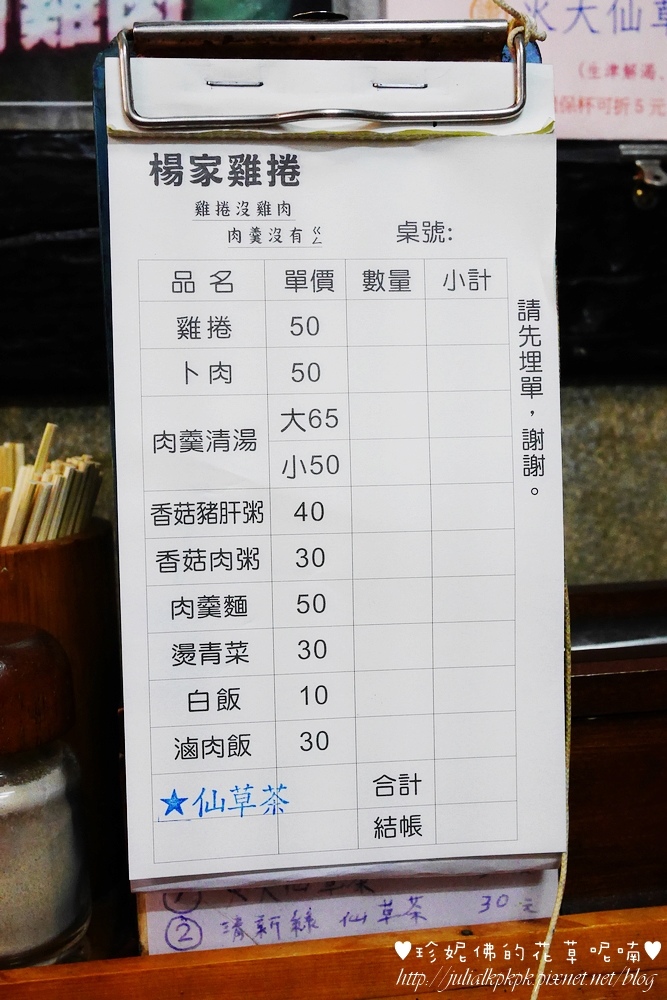 雞肉
火大仙草
(生津解渴、
保杯可折5元
楊家雞捲
雞捲沒雞肉
肉羹沒有ㄍㄥ
桌號:
品名 單價 數量 小計
雞捲 50
卜肉 50
肉羹清湯 大65
小50
香菇豬肝粥 40
香菇肉粥 30
肉羹麵 50
燙青菜 30
白飯 10
滷肉飯 30
★仙草茶 合計
結帳
請先埋單，謝謝。
① 火大仙草茶
② 清新綠 仙草茶 30元
♥珍妮佛的花草呢喃♥
http://julialkpkpk.pixnet.net/blog